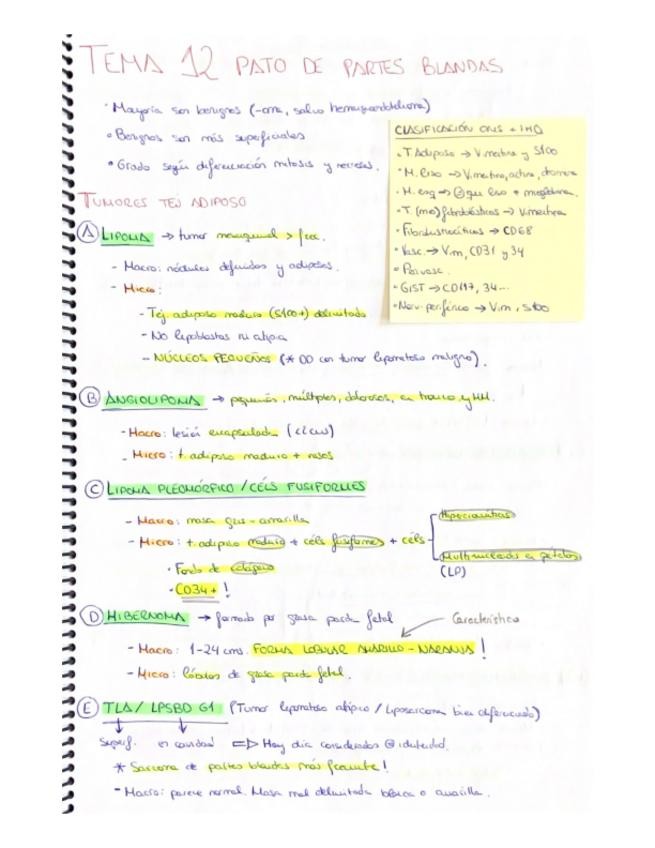 TEMA 12 PATO DE PARTES BLANDAS
· Mayoría son benignos (-ones, salvo hemangioendotelioma)
· Benignos son más superficiales
· Grado según diferenciación mitosis y necrosis.
CLASIFICACIÓN OMS + IHQ
· T. Adiposo → Vimentina y S100
· M. liso → Vimentina, actina, desmina
· M. esq → que liso + mioglobina.
· T. (mio)fibroblásticos → Vimentina
· Fibrohistiocíticos → CD68
· Vasc. → Vim, CD31 y 34
· Perivasc.
· GIST → CD117, 34...
· Nerv. periférico → Vim, S100
TUMORES TEJ ADIPOSO
A LIPOMA → tumor mesenquimal > frec.
- Macro: nódulos definidos y adiposos.
- Micro:
- Tej. adiposo maduro (S100+) delimitado
- No lipoblastos ni atipia
- NÚCLEOS PEQUEÑOS (* DD con tumor lipomatoso maligno).
B ANGIOLIPOMA → pequeños, múltiples, dolorosos, en tronco y MM.
- Macro: lesión encapsulada (<2cms)
- Micro: t. adiposo maduro + vasos
C LIPOMA PLEOMÓRFICO / CÉLS FUSIFORMES
- Macro: masa gris - amarilla
- Micro: t. adiposo maduro + céls fusiformes + céls
Hipercromáticas
Multinucleadas en pétalos
(LP)
· Fondo de colágeno
· CD34 + !
D HIBERNOMA → formado por grasa parda fetal
Característico
- Macro: 1-24 cms. FORMA LOBULAR AMARILLO - NARANJA !
- Micro: lóbulos de grasa parda fetal.
E TLA / LPSBD G1 (Tumor lipomatoso atípico / liposarcoma bien diferenciado)
Superf. en cavidad ⇒ Hoy día considerados = identidad.
* Sarcoma de partes blandas más frecuente !
- Macro: parece normal. Masa mal delimitada blanca o amarilla.